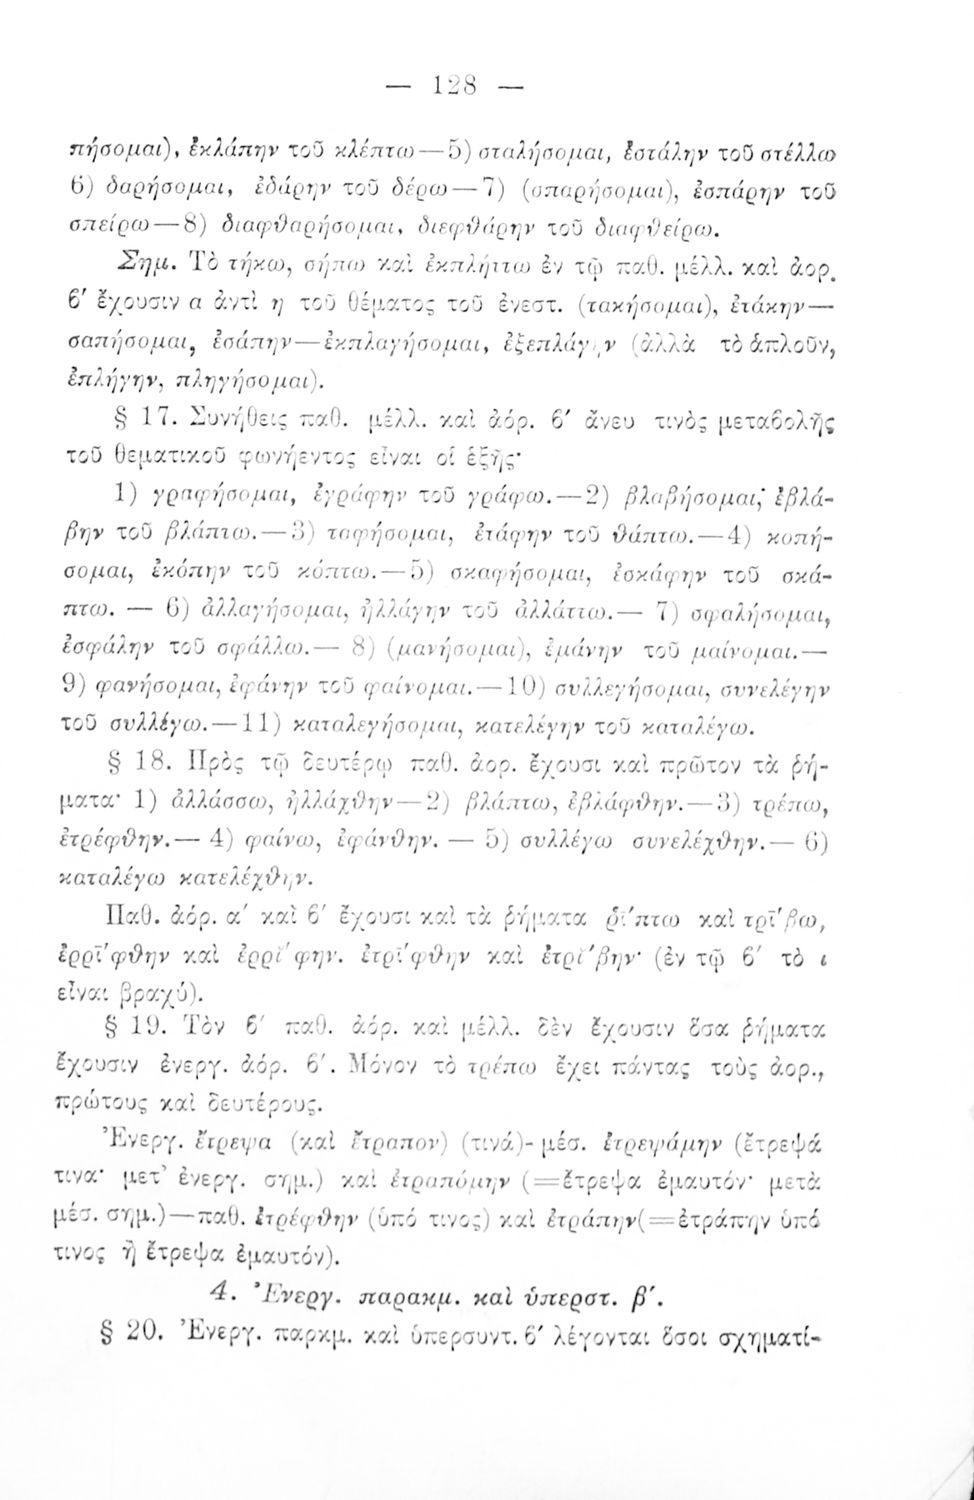 — 128 —
πήσομαι), ἐκλάπην τοῦ κλέπτω — 5) σταλήσομαι, ἐστάλην τοῦ στέλλω
6) δαρήσομαι, ἐδάρην τοῦ δέρω — 7) (σπαρήσομαι), ἐσπάρην τοῦ
σπείρω — 8) διαφθαρήσομαι, διεφθάρην τοῦ διαφθείρω.
Σημ. Τὸ τήκω, σήπω καὶ ἐκπλήττω ἐν τῷ παθ. μέλλ. καὶ ἀορ.
β' ἔχουσιν α ἀντὶ η τοῦ θέματος τοῦ ἐνεστ. (τακήσομαι), ἐτάκην —
σαπήσομαι, ἐσάπην — ἐκπλαγήσομαι, ἐξεπλάγην (ἀλλὰ τὸ ἁπλοῦν,
ἐπλήγην, πληγήσομαι).
§ 17. Συνήθεις παθ. μέλλ. καὶ ἀόρ. β' ἄνευ τινὸς μεταβολῆς
τοῦ θεματικοῦ φωνήεντος εἶναι οἱ ἑξῆς·
1) γραφήσομαι, ἐγράφην τοῦ γράφω. — 2) βλαβήσομαι, ἐβλά-
βην τοῦ βλάπτω. — 3) ταφήσομαι, ἐτάφην τοῦ θάπτω. — 4) κοπή-
σομαι, ἐκόπην τοῦ κόπτω. — 5) σκαφήσομαι, ἐσκάφην τοῦ σκά-
πτω. — 6) ἀλλαγήσομαι, ἠλλάγην τοῦ ἀλλάττω. — 7) σφαλήσομαι,
ἐσφάλην τοῦ σφάλλω. — 8) (μανήσομαι), ἐμάνην τοῦ μαίνομαι. —
9) φανήσομαι, ἐφάνην τοῦ φαίνομαι. — 10) συλλεγήσομαι, συνελέγην
τοῦ συλλέγω. — 11) καταλεγήσομαι, κατελέγην τοῦ καταλέγω.
§ 18. Πρὸς τῷ δευτέρῳ παθ. ἀορ. ἔχουσι καὶ πρῶτον τὰ ῥή-
ματα· 1) ἀλλάσσω, ἠλλάχθην — 2) βλάπτω, ἐβλάφθην. — 3) τρέπω,
ἐτρέφθην. — 4) φαίνω, ἐφάνθην. — 5) συλλέγω συνελέχθην. — 6)
καταλέγω κατελέχθην.
Παθ. ἀόρ. α' καὶ β' ἔχουσι καὶ τὰ ῥήματα ῥί'πτω καὶ τρῑ'βω,
ἐρρῑ'φθην καὶ ἐρρῐ'φην. ἐτρῑ'φθην καὶ ἐτρῐ'βην· (ἐν τῷ β' τὸ ι
εἶναι βραχύ).
§ 19. Τὸν β' παθ. ἀόρ. καὶ μέλλ. δὲν ἔχουσιν ὅσα ῥήματα
ἔχουσιν ἐνεργ. ἀόρ. β'. Μόνον τὸ τρέπω ἔχει πάντας τοὺς ἀορ.,
πρώτους καὶ δευτέρους.
Ἐνεργ. ἔτρεψα (καὶ ἔτραπον) (τινά)- μέσ. ἐτρεψάμην (ἔτρεψά
τινα· μετ' ἐνεργ. σημ.) καὶ ἐτραπόμην (=ἔτρεψα ἐμαυτόν· μετὰ
μέσ. σημ.) — παθ. ἐτρέφθην (ὑπό τινος) καὶ ἐτράπην(=ἐτράπην ὑπό
τινος ἢ ἔτρεψα ἐμαυτόν).
4. Ἐνεργ. παρακμ. καὶ ὑπερστ. β'.
§ 20. Ἐνεργ. παρκμ. καὶ ὑπερσυντ. β' λέγονται ὅσοι σχηματί-